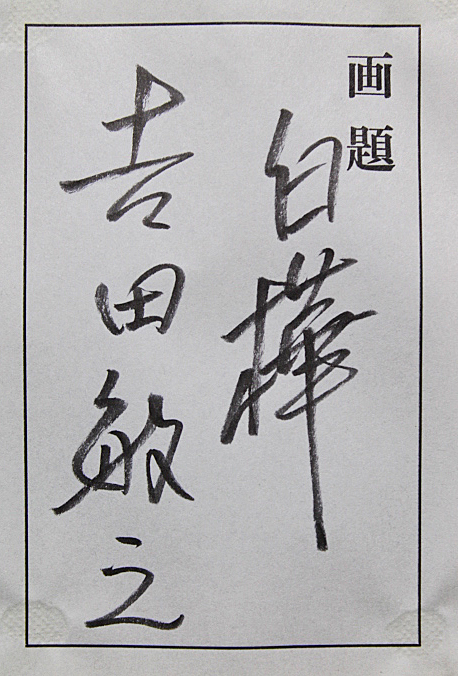 画題
白樺
吉田敏之